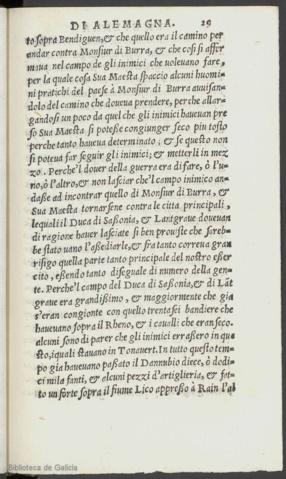 DI ALEMAGNA. 29
to sopra Bendiguen, & che quello era il camino per
andar contra Monsiur di Burra, & che cosi si affer
maua nel campo de gli inimici che uoleuano fare,
per la quale cosa Sua Maesta spaccio alcuni huomi
ni pratichi del paese à Monsiur di Burra auisan-
dolo del camino che doueua prendere, perche allar
gandosi un poco da quel che gli inimici haueuan pre
so Sua Maesta si potesse congiunger seco piu tosto
perche tanto haueua determinato; & se questo non
si poteua far seguir gli inimici; & metterli in mez
zo. Perche'l douer della guerra era di fare, ò l'u
no, ò l'altro, & non lasciar che'l campo inimico an-
dasse ad incontrar quello di Monsur di Burra, &
Sua Maesta tornarsene contra le citta principali,
le quali il Duca di Sassonia, & Lantgraue doueuan
di ragione hauer lasciate si ben prouiste che sareb-
be stato uano l'assediarle, & fra tanto correua gran
risigo quella parte tanto principale del nostro esser
cito, essendo tanto disequale di numero della gen-
te. Perche'l campo del Duca di Sassonia, & di Lāt
graue era grandissimo, & maggiormente che gia
s'eran congionte con quello trentasei bandiere che
haueuano sopra il Rheno, & i caualli che eran seco.
alcuni sono di parer che gli inimici errassero in que
sto, iquali stauano in Tonauert. In tutto questo tem-
po gia haueuano passato il Dannubio diece, ò dodi-
ci mila fanti, & alcuni pezzi d'artiglieria, & fat-
to un forte sopra il fiume Lico appresso à Rain l'al
Biblioteca de Galicia